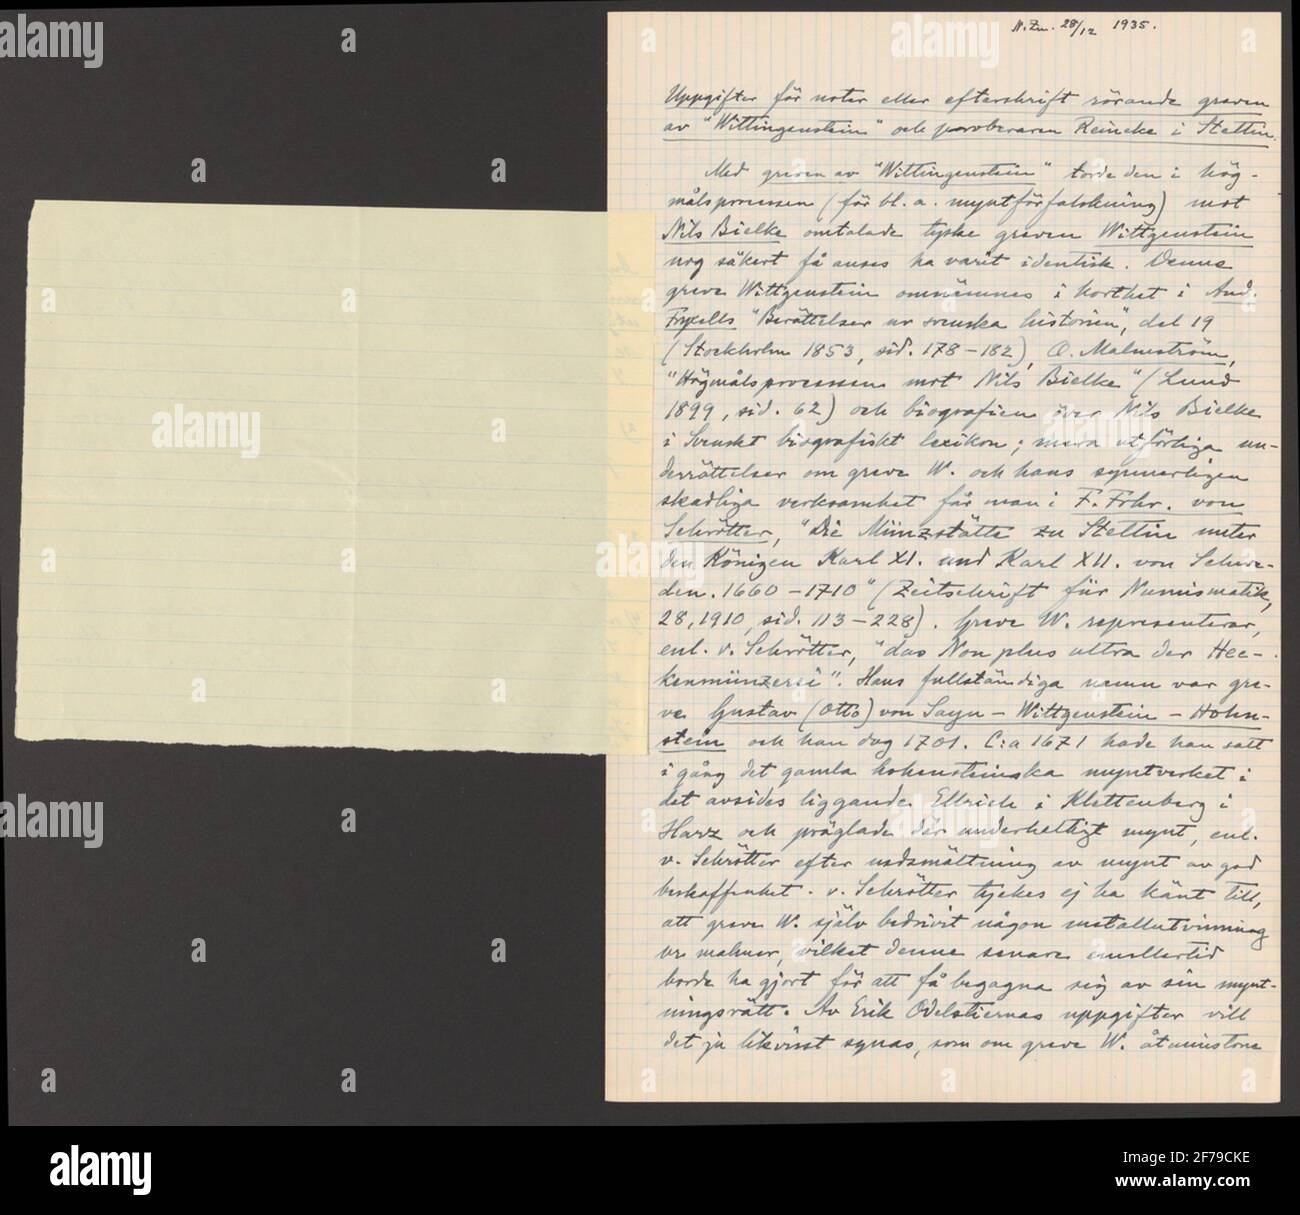 N. Zn. 28/12 1935.
Uppgifter för noter eller efterskrift rörande greven
av "Wittingenstein" och proberaren Reincke i Stettin.
Med greven av "Wittingenstein" torde den i hög-
målsprocessen (för bl. a. myntförfalskning) mot
Nils Bielke omtalade tyske greven Wittgenstein
nog säkert få anses ha varit identisk. Denne
greve Wittgenstein omnämnes i korthet i And.
Fryxells "Berättelser ur svenska historien", del 19
(Stockholm 1853, sid. 178-182), O. Malmström,
"Högmålsprocessen mot Nils Bielke" (Lund
1899, sid. 62) och biografien över Nils Bielke
i Svenskt biografiskt lexikon; mera utförliga un-
derrättelser om greve W. och hans synnerligen
skadliga verksamhet får man i F. Frhr. von
Schrötter, "Die Münzstätte zu Stettin unter
den Königen Karl XI. und Karl XII. von Schwe-
den. 1660-1710" (Zeitschrift für Numismatik,
28, 1910, sid. 113-228). Greve W. representerar,
enl. v. Schrötter, "das Non plus ultra der Hec-
kenmünzerei". Hans fullständiga namn var gre-
ve Gustav (Otto) von Sayn-Wittgenstein-Hohn-
stein och han dog 1701. C:a 1671 hade han satt
i gång det gamla hohensteinska myntverket i
det avsides liggande Ellrich i Klettenberg i
Harz och präglade där underhaltigt mynt, enl.
v. Schrötter efter nedsmältning av mynt av god
beskaffenhet. v. Schrötter tyckes ej ha känt till,
att greve W. själv bedrivit någon metallutvinning
ur malmer, vilket denne senare emellertid
borde ha gjort för att få begagna sig av sin mynt-
ningsrätt. Av Erik Odelstiernas uppgifter vill
det ju likvisst synas, som om greve W. åtminstone
alamy
alamy
alamy
alamy
Image ID: 2F79CKE
www.alamy.com